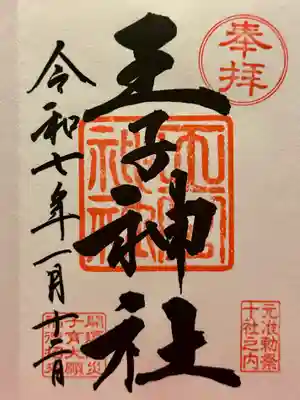 奉拝
王子神社
令和七年一月十二日
元准勅祭
十社之内
開運除災
子育大願